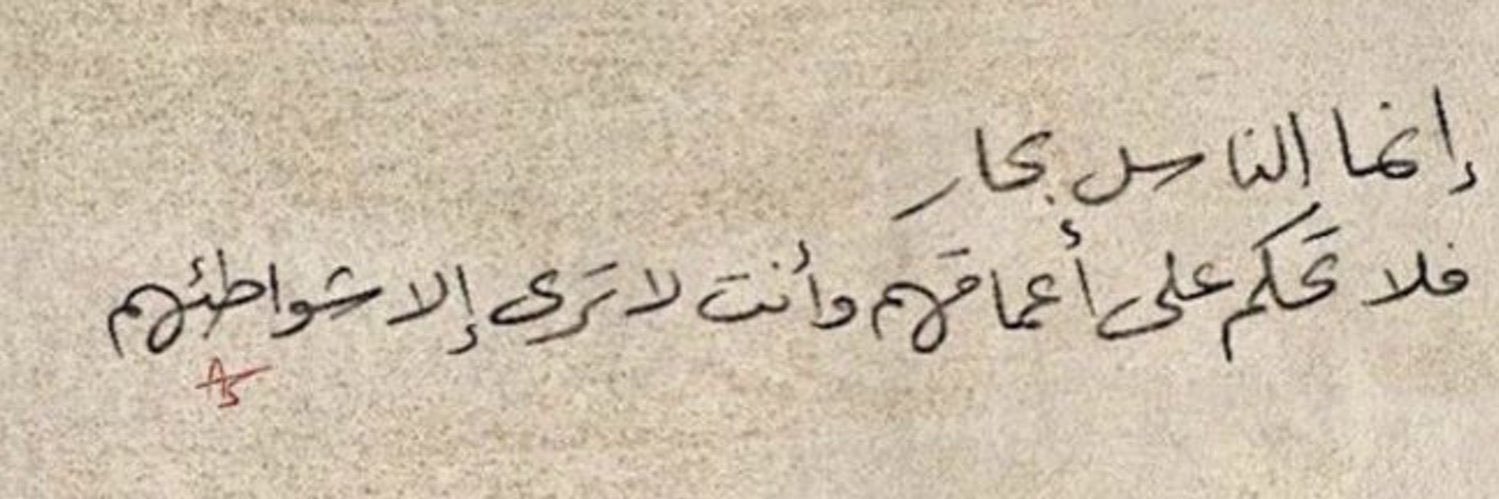 إنما الناس بحار
فلا تحكم على أعماقهم وأنت لا ترى إلا شواطئهم